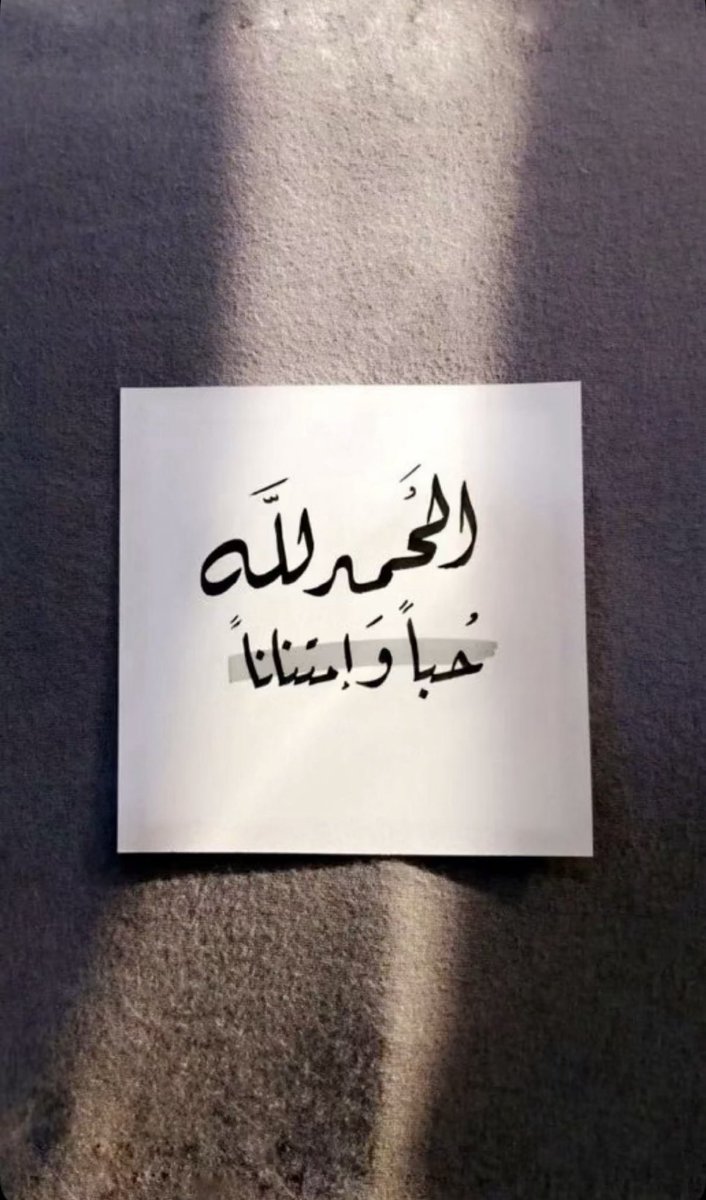 الحَمد للَّه
حُباً وَإمتناناً